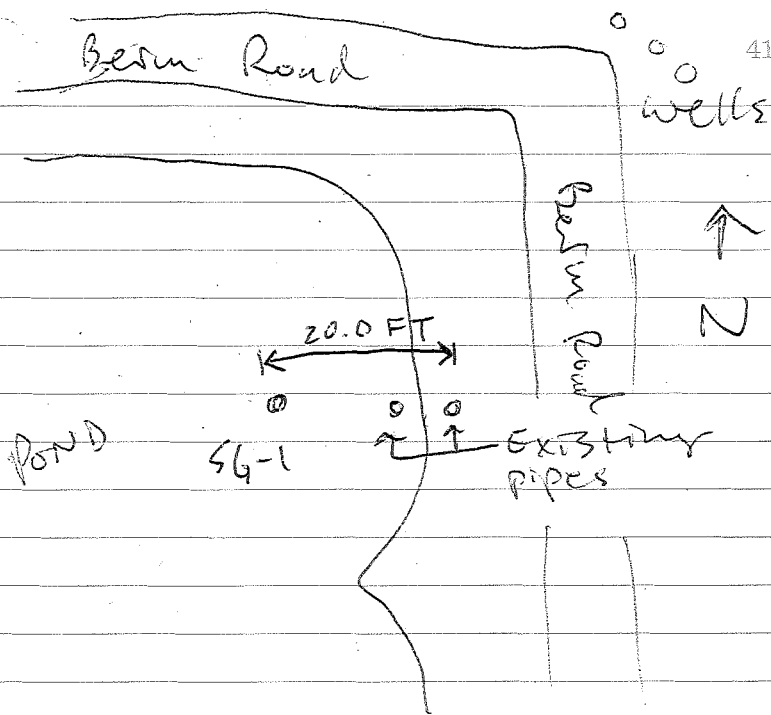 Berm Road
41
wells
Berm Road
N
20.0 FT
POND
SG-1
Existing
pipes